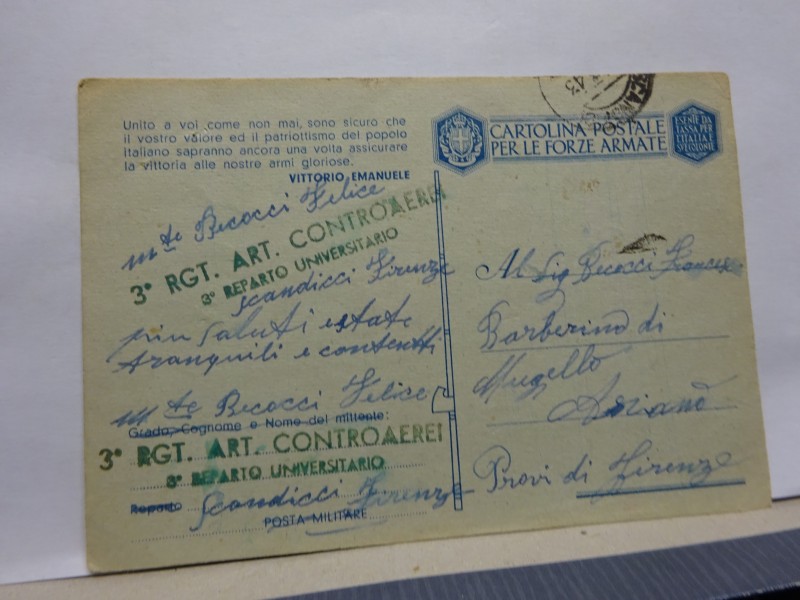 Unito a voi come non mai, sono sicuro che
il vostro valore ed il patriottismo del popolo
italiano sapranno ancora una volta assicurare
la vittoria alle nostre armi gloriose.
VITTORIO EMANUELE
mte Becocci Felice
3° RGT. ART. CONTROAEREI
3° REPARTO UNIVERSITARIO
Scandicci Firenze
piu saluti e state
tranquili e contenti
mte Becocci Felice
Grado, Cognome e Nome del mittente:
3° RGT. ART. CONTROAEREI
3° REPARTO UNIVERSITARIO
Reparto Scandicci Firenze
POSTA MILITARE
43
CARTOLINA POSTALE
PER LE FORZE ARMATE
E SE NE DA
LASSA PER
L'ITALIA E
SVETOLONI
Al Sig Becocci
Barberino di
Mugello
Provi di Firenze